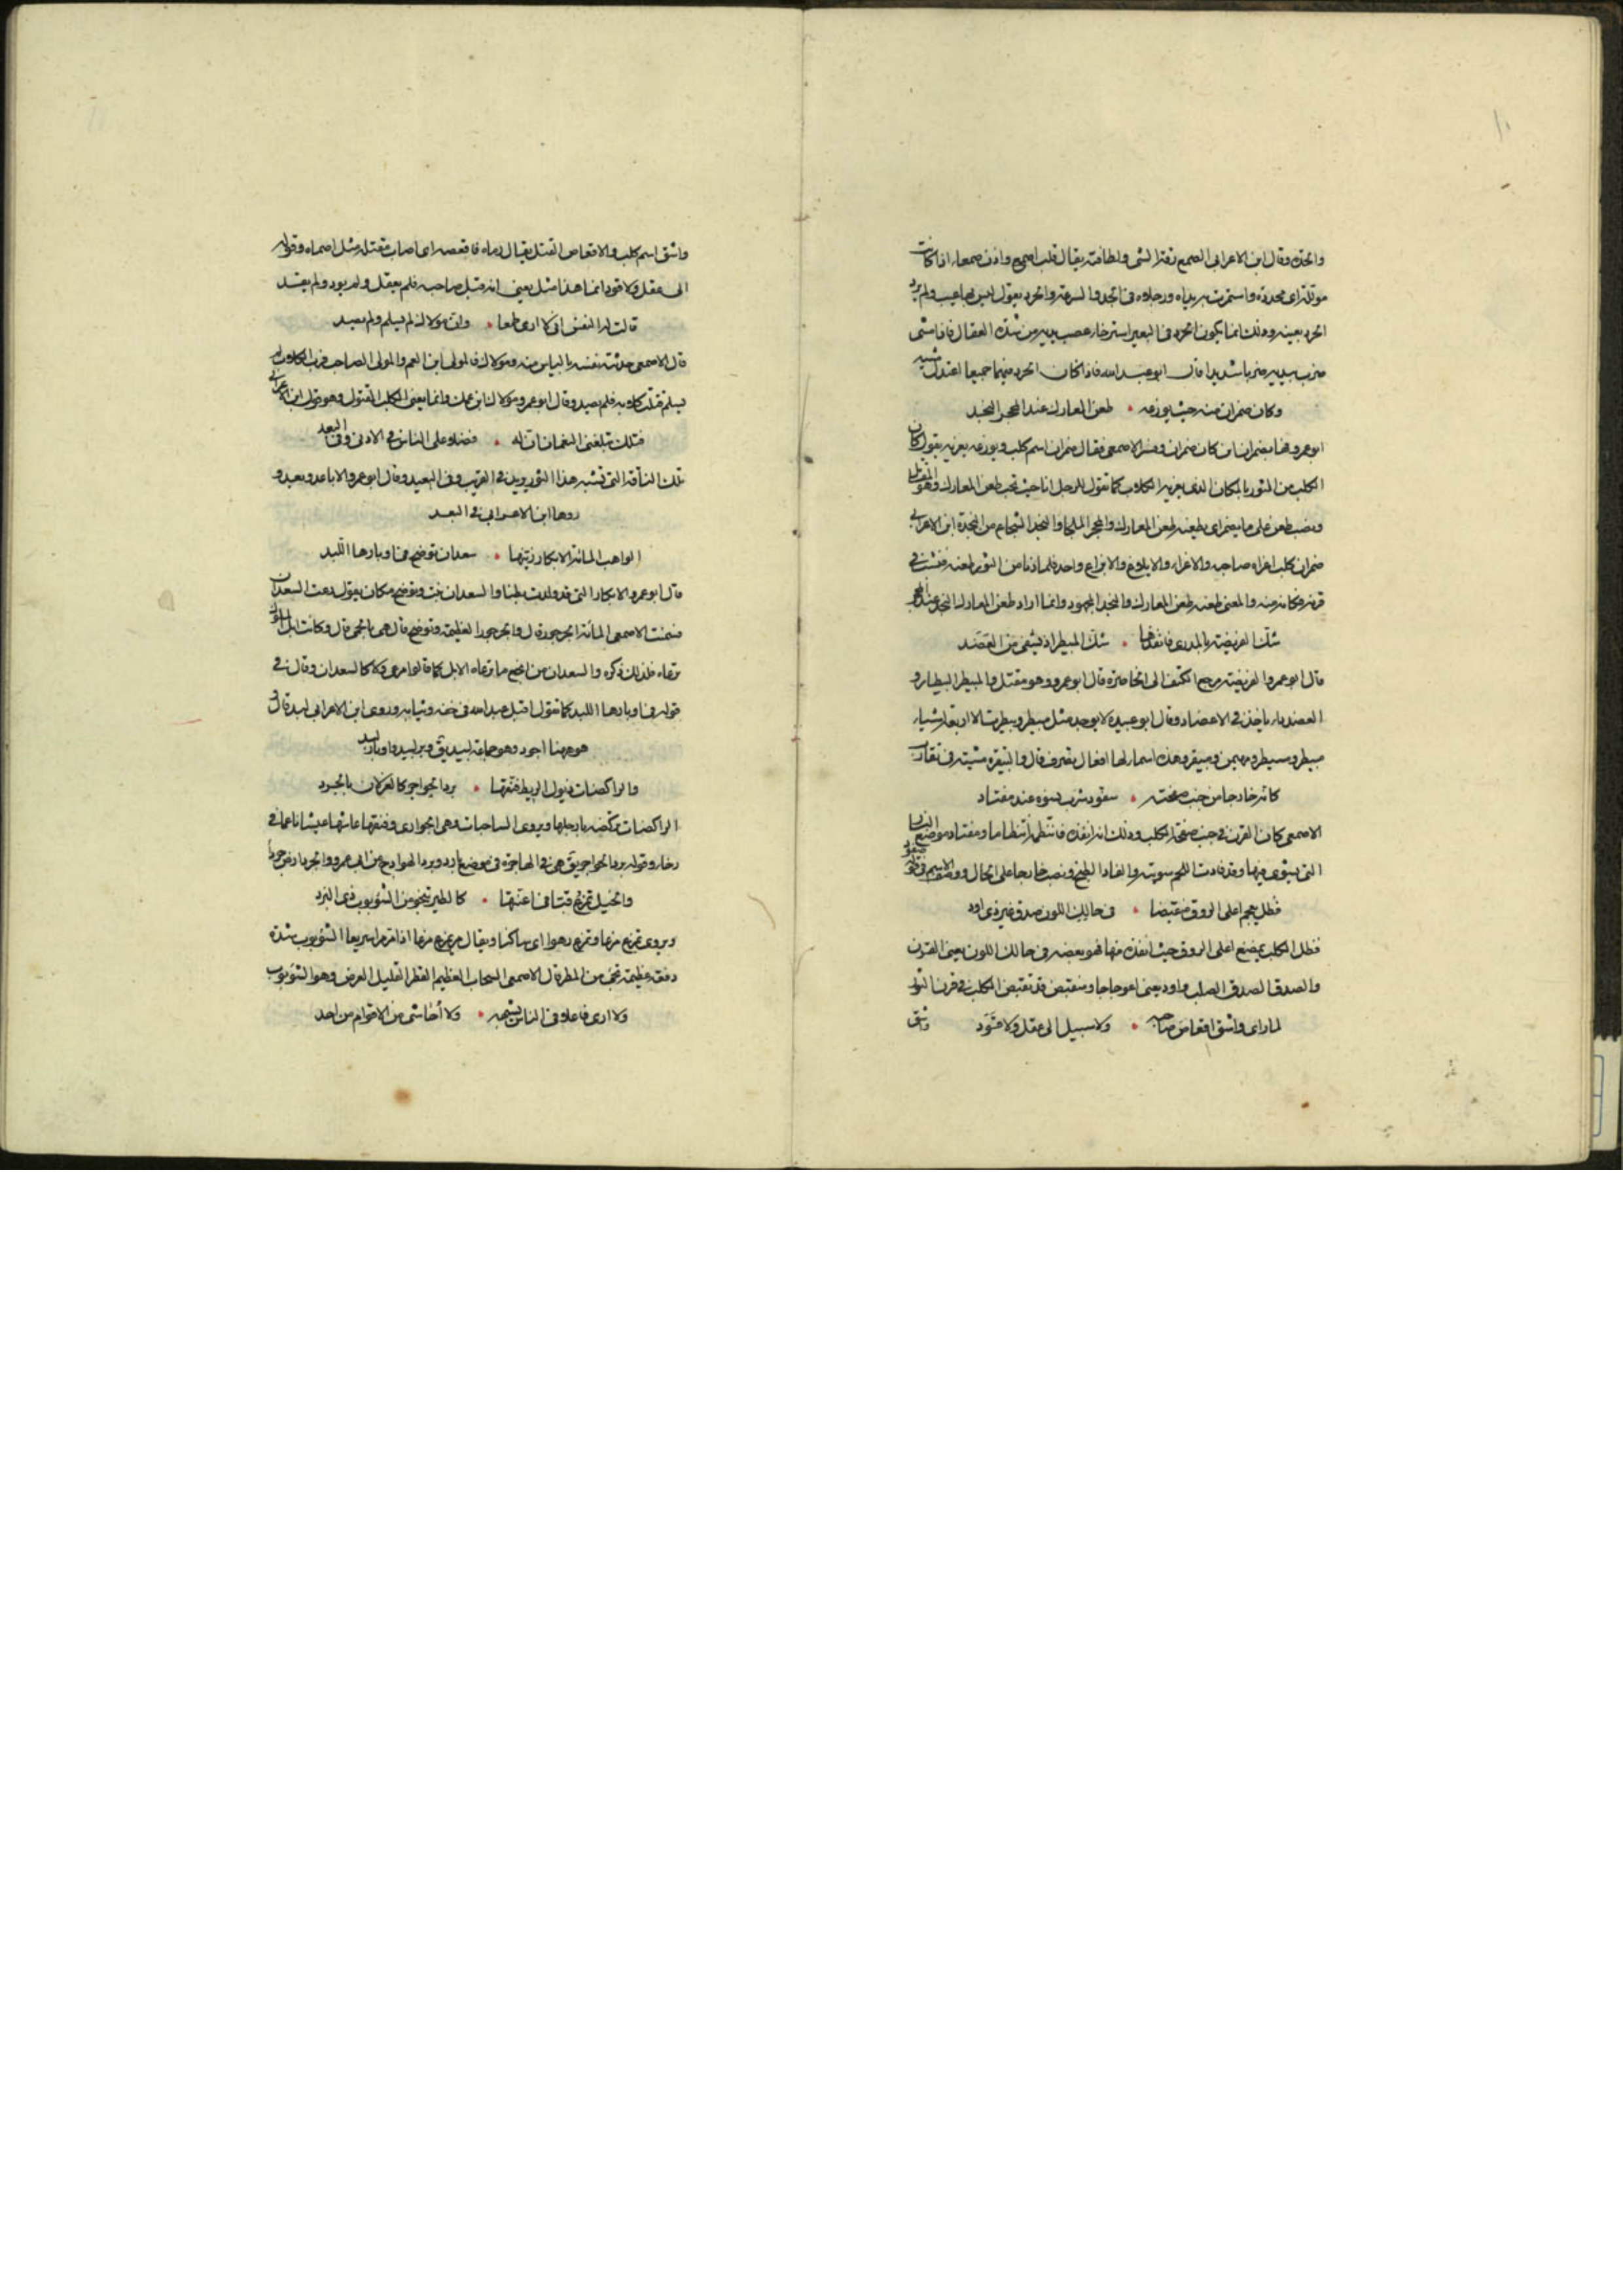 والحدة وقال ابن الاعرابي الصمع دقة الشي ولطافته يقال قلب اصمع واذن صمعاء اذا كانت
مولّلة اي محددة واستمرت به يداه ورجلاه في الجد والسرعة والحرد يقول ليس بها عيب ولم يرد
الحرد بعينه وذلك انما يكون الحرد في البعير استرخاء عصب يديه من شدة العقال فاذا مشى
ضرب بيديه ضربا شديدا قال ابو عبد الله فاذا كان الحرد فيهما جميعا اعتدل مشيه
وكان ضمران منه حيث يوزعه • طعن المعارك عند المحجر النجد
ابو عمرو فهاب ضمران ابن كان ضمران وفسر الاصمعي فقال ضمران اسم كلب ويوزعه يغريه يقول كان
الكلب من الثور بالمكان الذي يغريه الكلاب كما تقول للرجل انا حيث تحب طعن المعارك وهو المقاتل
ونصب طعن على ما يضمر اي يطعنه طعن المعارك والمحجر الملجا والنجد الشجاع من النجدة ابن الاعرابي
ضمران كلب اغراه صاحبه والاغراء والايلوغ والايزاع واحد فلما دنا من الثور طعنه فنشب في
قرنه فكانه منه والمعنى طعنه طعن المعارك والنجد المجهود وانما اراد طعن المعارك النجد عند المحجر
شكّ الفريصة بالمدرى فانفذها • شكّ المبيطر اذ يشفي من العضد
قال ابو عمرو الفريصة مرجع الكتف الى الخاصرة قال ابو عمرو وهو مقتل والمبيطر البيطار و
العضد داء ياخذ في الاعضاد وقال ابو عبيدة لا يوجد مثل مبيطر وبيطرت الا اربعة اشياء
مبيطر ومسيطر ومهيمن ومبيقر وهذه اسماء لها افعال تصرف قال والبيقرة مشية في تقارب
كانه خارجا من جنب صفحته • سفّود شرب نسوه عند مفتاد
الاصمعي كان القرن في جنب صفحة الكلب وذلك انه انفذه فانتظمه انتظاما ومفتاد موضع النار
التي يشوى فيها وقد فادت اللحم شويته والفاد الطبخ ونصب خارجا على الحال ووصف الاسم في قوله سفود
فظل يعجم اعلى الروق منقبضا • في حالك اللون صدق غير ذي اود
فظل الكلب يمضغ اعلى الروق حيث انفذه فيها فهو يعضه في حالك اللون يعني القرن
والصدق الصدق الصلب واود يعني اعوجاجا ومنقبض قد تقبض الكلب في قرن الثور
لما راى واشق اقعاص صاحبه • ولا سبيل الى عقل ولا قوَد
واشق
واشق اسم كلب والاقعاص القتل يقال رماه فاقعصه اي اصاب مقتله مثل اصماه وقوله
الى عقل ولا قود انما هذا مثل يعني انه قتل صاحبه فلم يعقل ولم يود ولم يقد
قالت له النفس اني لا ارى طمعا • وان مولاك لم يسلم ولم يصد
قال الاصمعي حدثته نفسه بالياس منه ومولاك فالمولى ابن العم والمولى الصاحب فرب الكلاب لم
يسلم قتلت كلابه فلم يصد وقال ابو عمرو مولاك ابن عمك وانما يعني الكلب المقتول وهو قول ابن الاعرابي
فتلك تبلغني النعمان ان له • فضلا على الناس في الادنى وفي البعد
تلك الناقة التي تشبه هذا الثور يريد في القريب وفي البعيد وقال ابو عمرو الاباعد وبعيد و
رواها ابن الاعرابي في البعد
الواهب المائة الابكار زينها • سعدان توضح في اوبارها اللبد
قال ابو عمرو الابكار التي قد ولدت بطنا والسعدان نبت وتوضح مكان يقول رعت السعدان
فسمنت الاصمعي المائة الجرجور قال والجرجور العظيمة وتوضح قال هي بالحمى قال وكانت ابل الملوك
ترعاه فلذلك ذكره والسعدان من انجع ما ترعاه الابل كما قالوا مرعى ولا كالسعدان وقال في
قوله في اوبارها اللبد كما تقول اقبل عبد الله في خفه وثيابه وروى ابن الاعرابي لبد قال
هو ههنا اجود وهو جماعة لبيد يق وبر لبيد واوبار لبد
والراكضات ذيول الريط فنّقها • برد الهواجر كالغزلان بالجرد
الراكضات تركضه بارجلها ويروى الساحبات وهي الجواري وفنقها عاشها عيشا ناعما في
رخاء وقوله برد الهواجر يق هي في الهاجرة في موضع بارد وبرد الهوادج من ابي عمرو والجرد ارض جرداء
والخيل تمزع قبّا في اعنتها • كالطير تنجو من الشؤبوب ذي البرد
ويروى تمزع مزعا وتمزع رهوا اي ساكنا ويقال مر يمزع مزعا اذا مر مرا سريعا الشؤبوب شدة
دفعة عظيمة تجئ من المطر قال الاصمعي السحاب العظيم القطر القليل العرض وهو الشؤبوب
ولا ارى فاعلا في الناس يشبهه • ولا أحاشي من الاقوام من احد